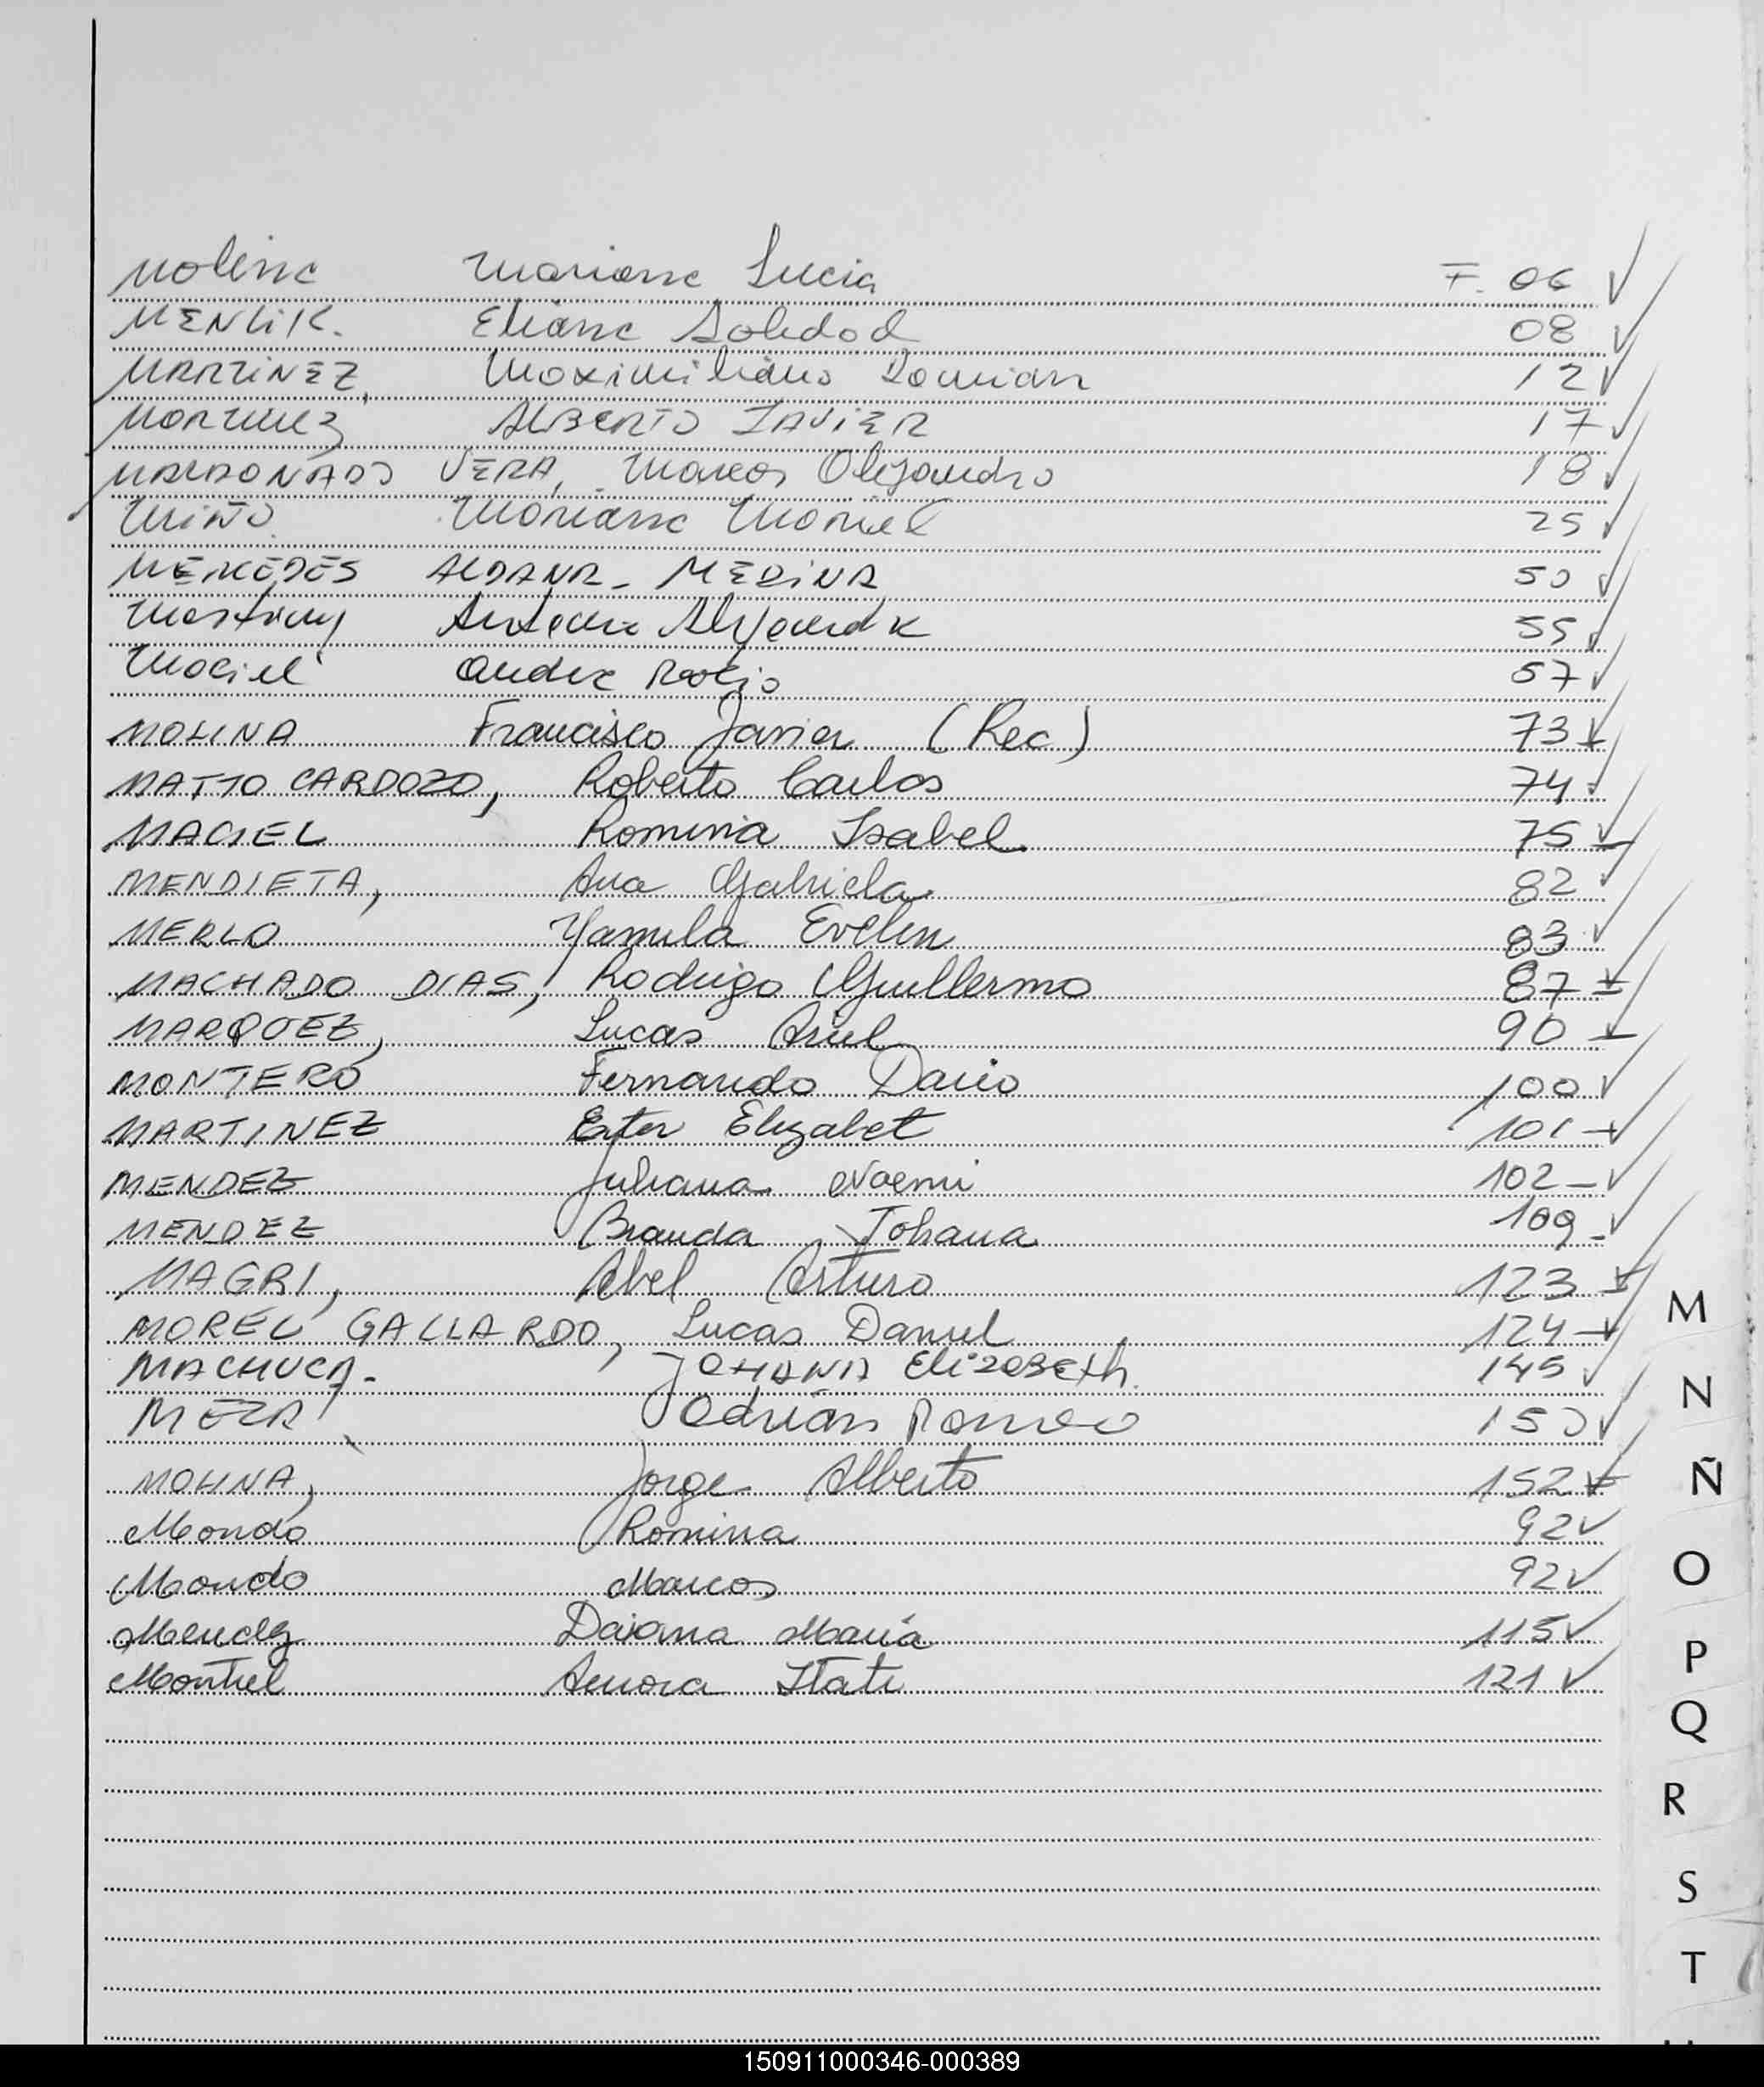 Molina Mariana Lucia F. 06 ✓
MENLIK. Eliana Soledad 08 ✓
MARTINEZ, Maximiliano Damian 12 ✓
Martinez ALBERTO JAVIER 17 ✓
MALDONADO VERA, Marcos Alejandro 18 ✓
Miño Mariana Mariel 25 ✓
MERCEDES ALDANA - MEDINA 50 ✓
Antonia Alejandra 55 ✓
Maciel Andre Rocio 57 ✓
MOLINA Francisco Javier (Rec) 73 ✓
MATTO CARDOZO, Roberto Carlos 74 ✓
MACIEL Romina Isabel 75 ✓
MENDIETA, Ana Gabriela 82 ✓
MERLO Yamila Evelin 83 ✓
MACHADO DIAS, Rodrigo Guillermo 87 ✓
MARQUEZ, Lucas Ariel 90 ✓
MONTERO Fernando Dario 100 ✓
MARTINEZ Ester Elizabet 101 ✓
MENDEZ Juliana Noemi 102 ✓
MENDEZ Branda Johana 109 ✓
MAGRI, Abel Arturo 123 ✓
MOREL GALLARDO, Lucas Daniel 124 ✓
MACHUCA - JOHANA ElizaBEth. 145 ✓
MEZA, Adrián Romeo 150 ✓
MOLINA, Jorge Alberto 152 ✓
Mondo Romina 92 ✓
Mondo Marcos 92 ✓
Mendez Daiana María 115 ✓
Montiel Aurora Itati 121 ✓
M
N
Ñ
O
P
Q
R
S
T
150911000346-000389